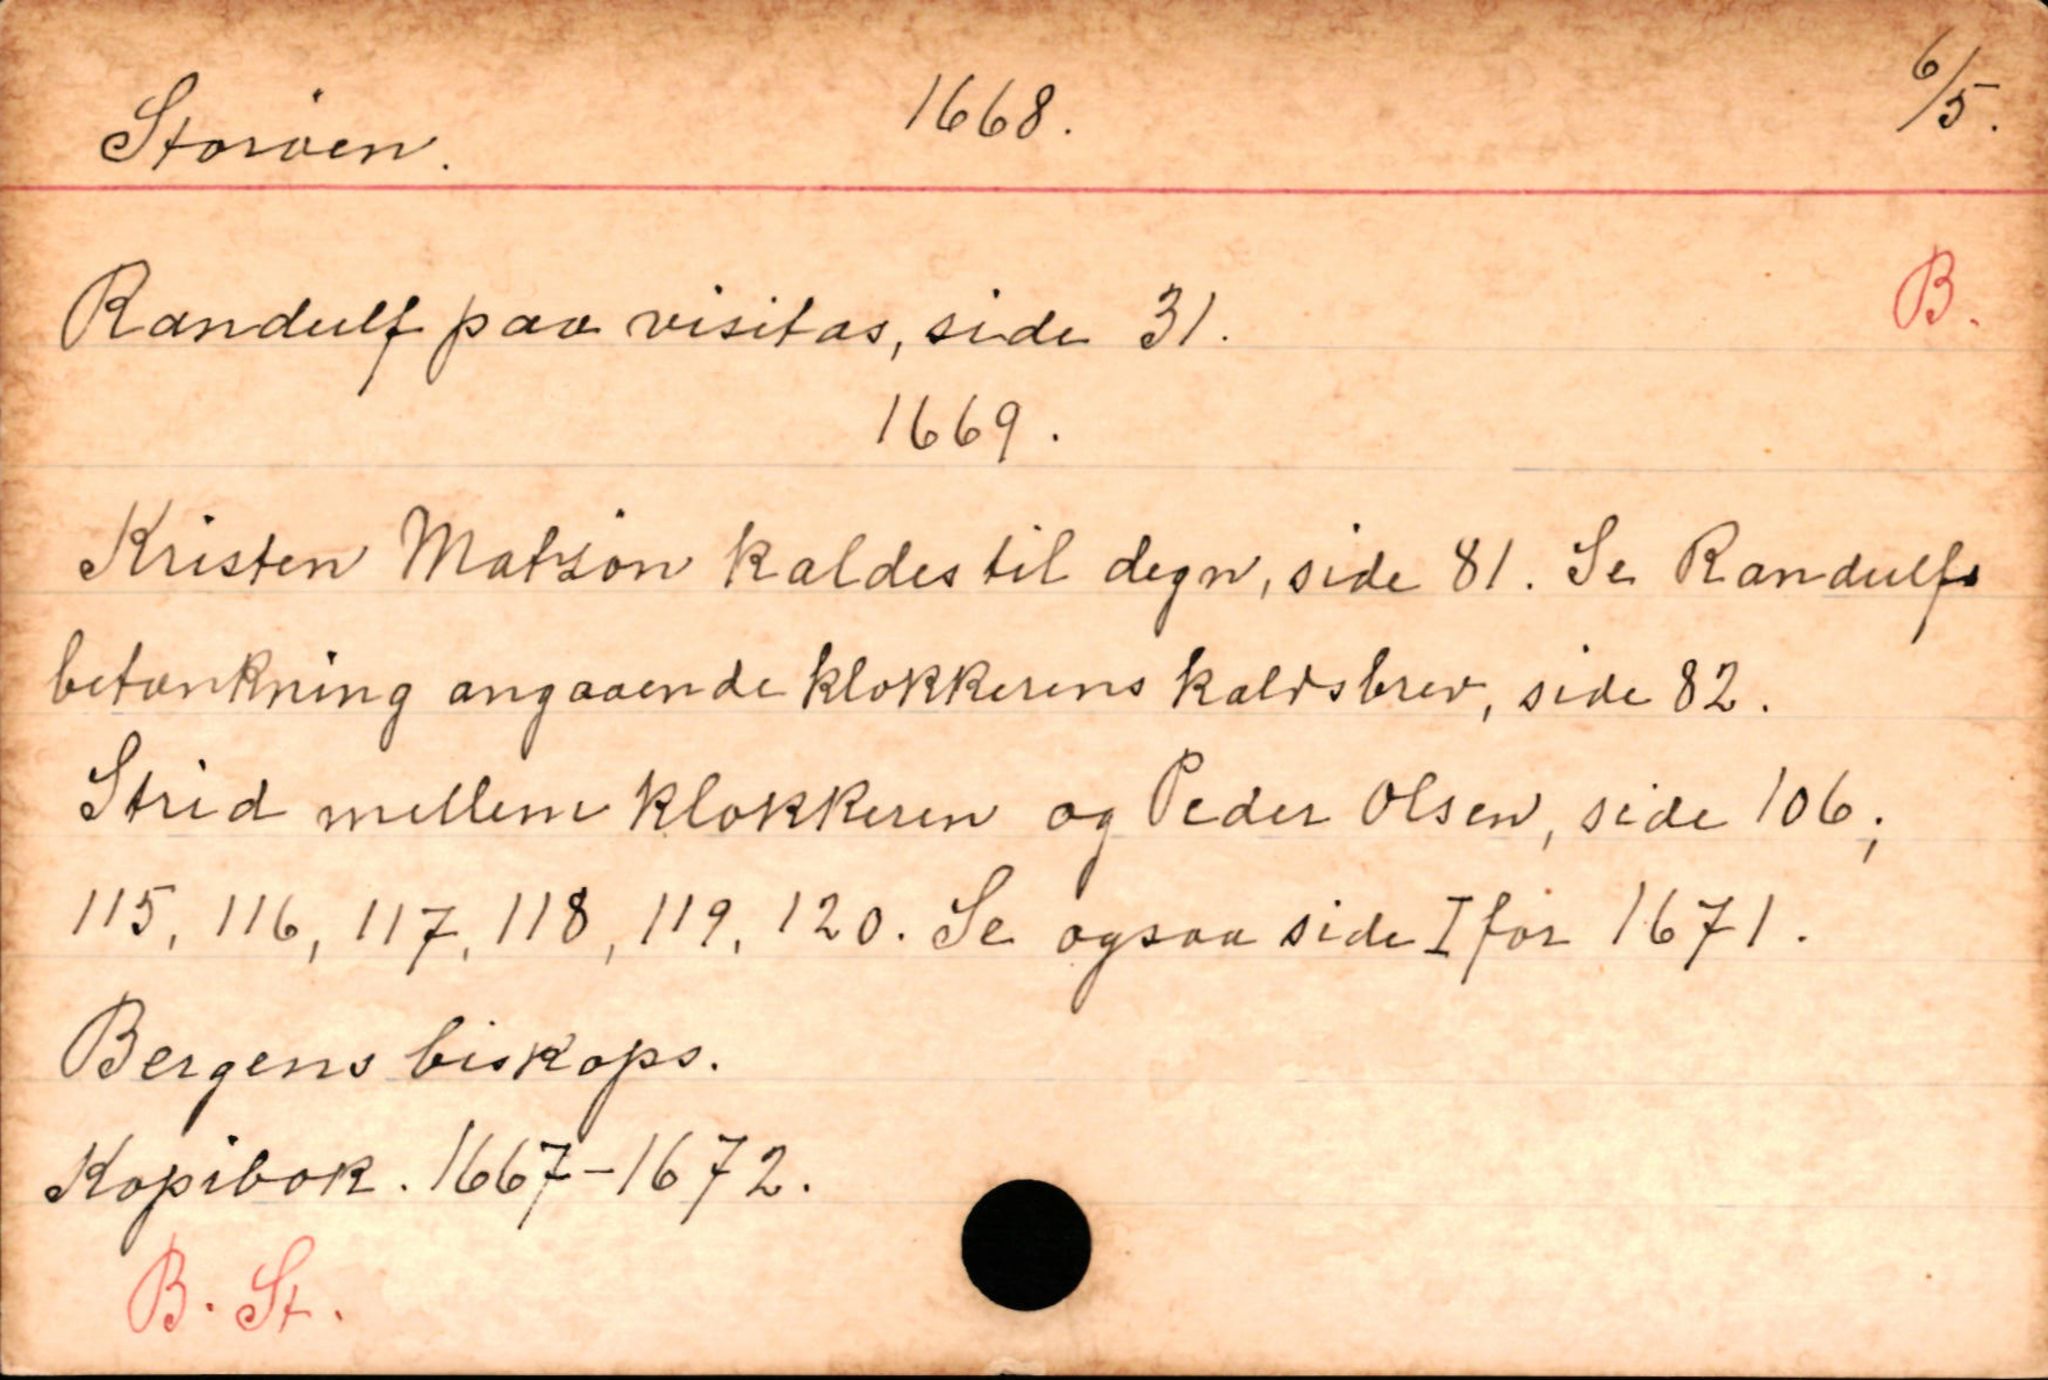 Storöen. 1668. 6/5.
Randulf paa visitas, side 31. B.
1669.
Kristen Matzön kaldes til degn, side 81. Se Randulfs
betænkning angaaende klokkerens kaldsbrev, side 82.
Strid mellem klokkeren og Peder Olsen, side 106;
115, 116, 117, 118, 119, 120. Se ogsaa side I for 1671.
Bergens biskops.
Kopibok. 1667-1672.
B. St.